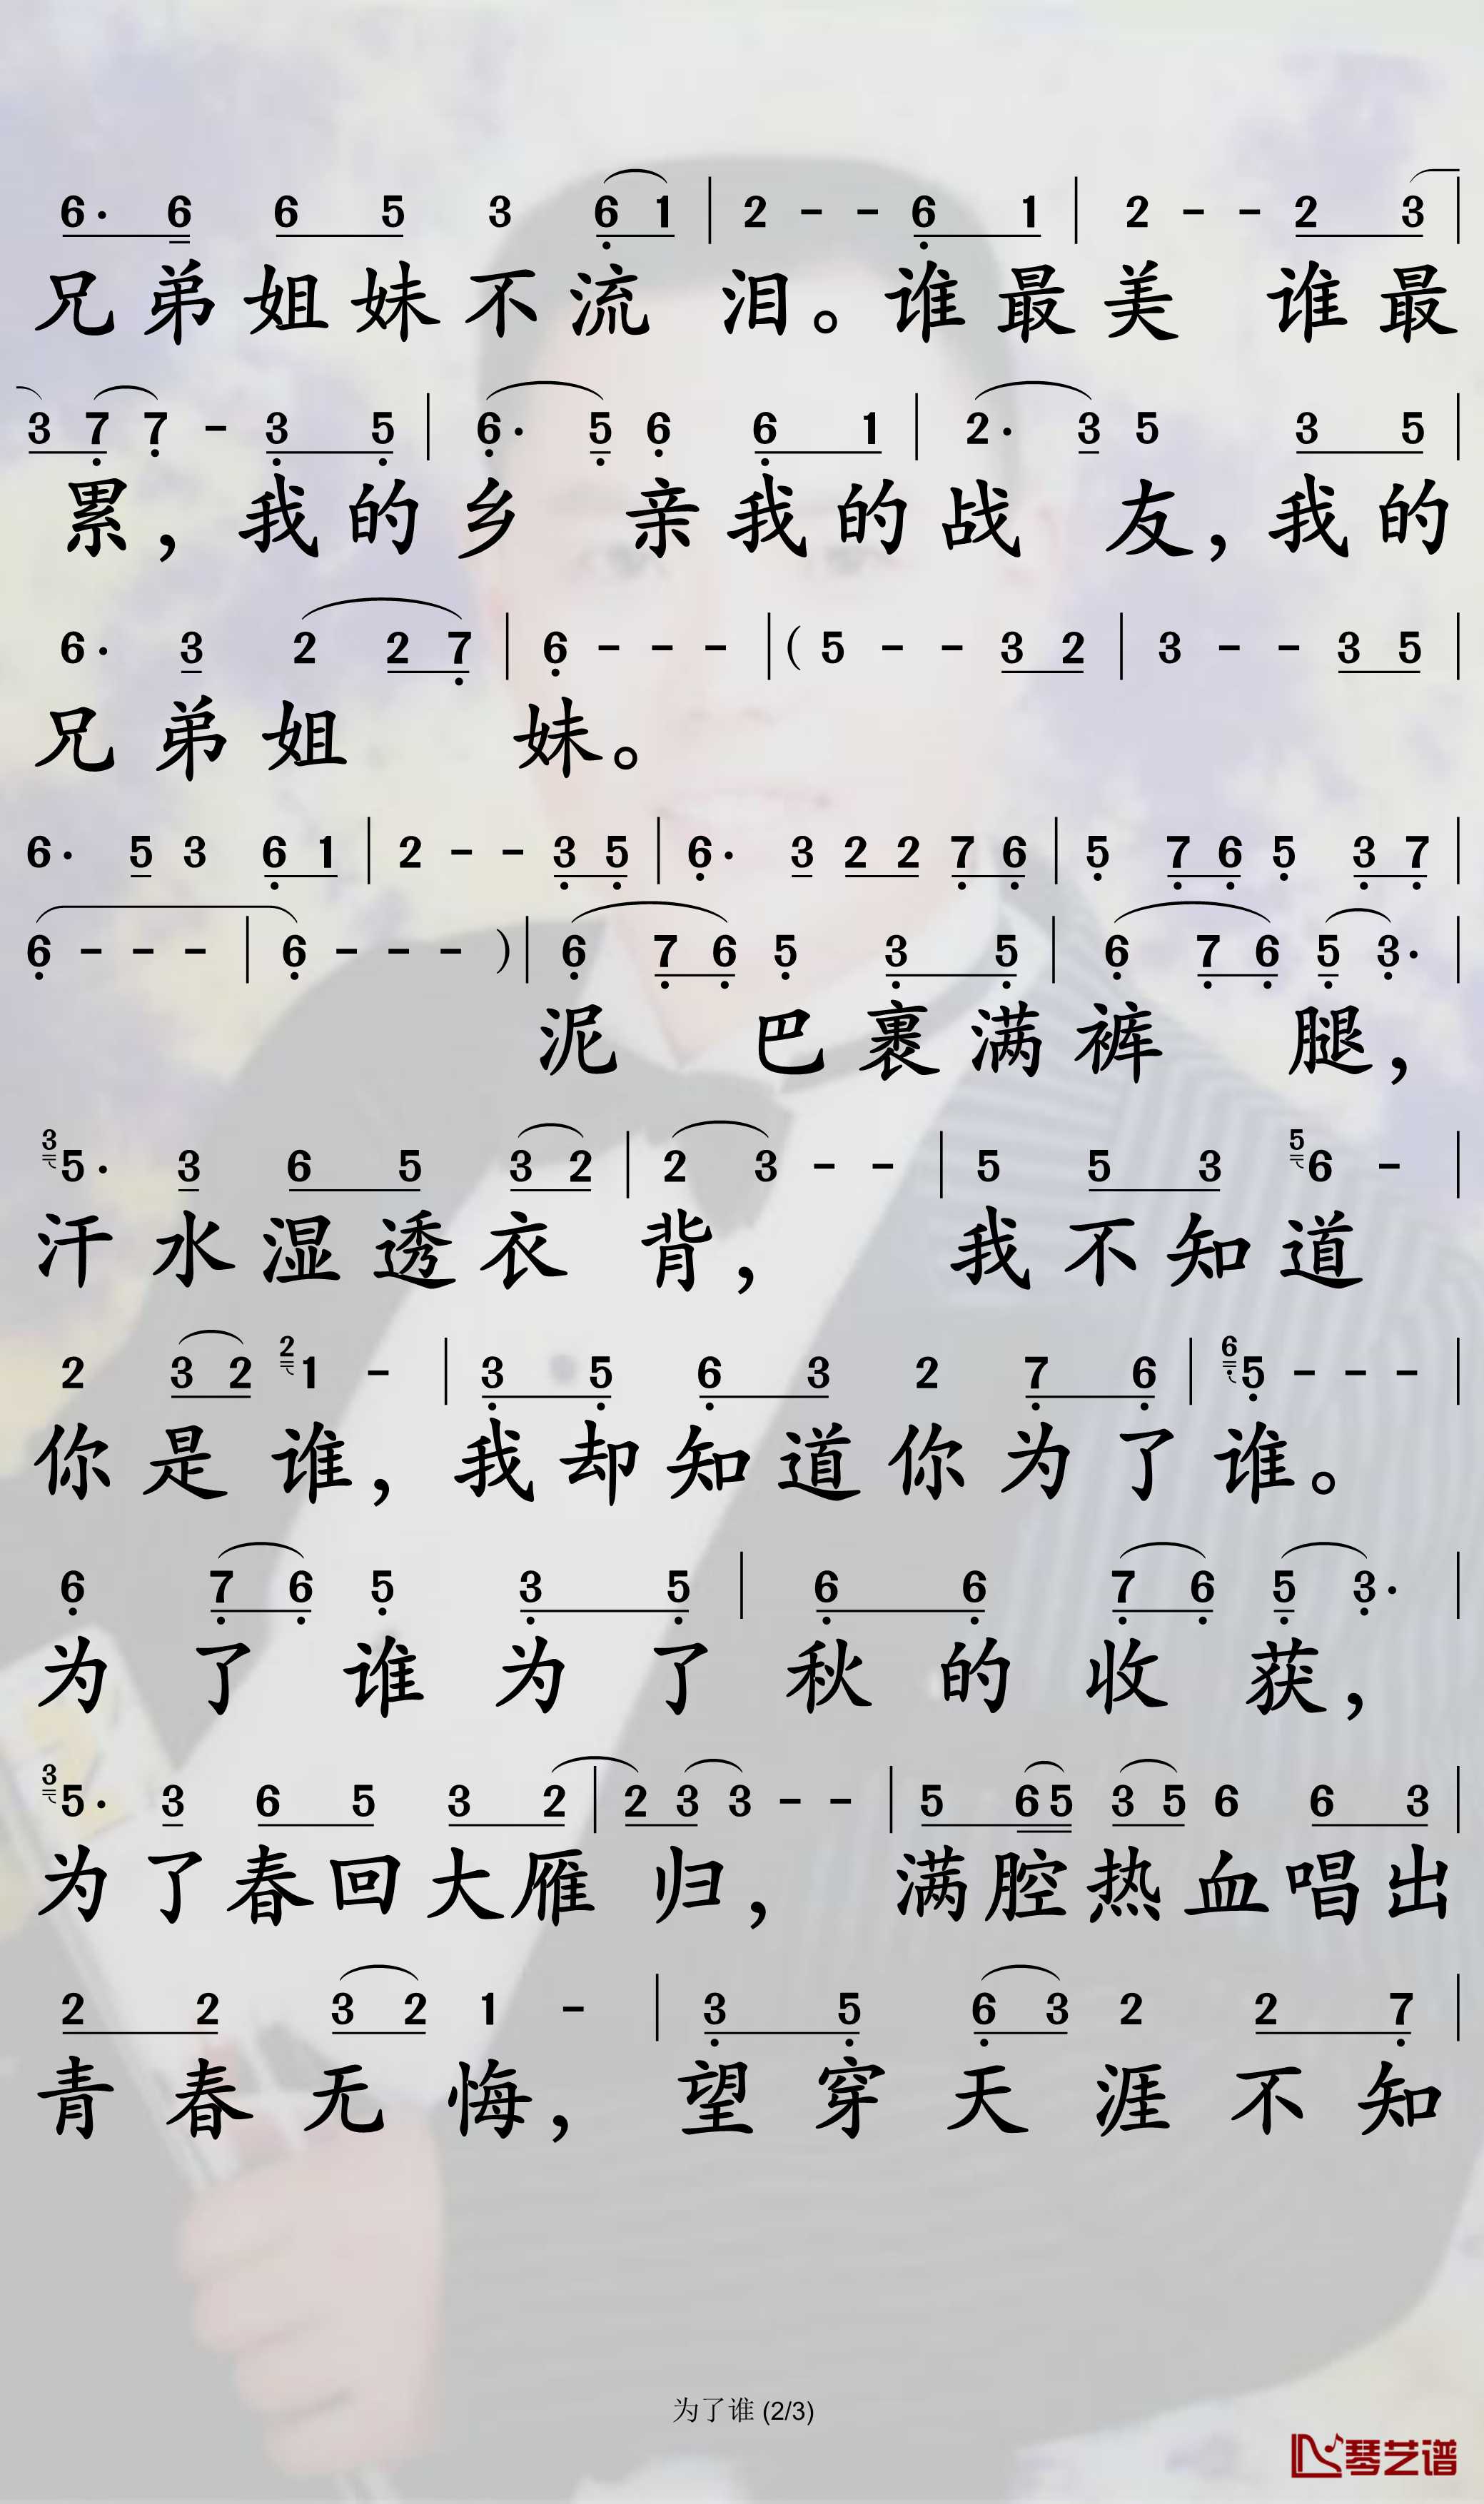 6· 6 6 5 3 6 1 | 2 - - 6 1 | 2 - - 2 3 |
兄弟姐妹不流泪。谁最美 谁最
3 7 7 - 3 5 | 6· 5 6 6 1 | 2· 3 5 3 5 |
累，我的乡 亲我的战 友，我的
6· 3 2 2 7 | 6 - - - | ( 5 - - 3 2 | 3 - - 3 5 |
兄弟姐 妹。
6· 5 3 6 1 | 2 - - 3 5 | 6· 3 2 2 7 6 | 5 7 6 5 3 7 |
6 - - - | 6 - - - ) | 6 7 6 5 3 5 | 6 7 6 5 3· |
泥 巴裹满裤 腿，
3 5· 3 6 5 3 2 | 2 3 - - | 5 5 3 5 6 - |
汗水湿透衣 背， 我不知道
2 3 2 2 1 - | 3 5 6 3 2 7 6 | 6 5 - - - |
你是谁，我却知道你为了谁。
6 7 6 5 3 5 | 6 6 7 6 5 3· |
为了谁为了秋的收获，
3 5· 3 6 5 3 2 | 2 3 3 - - | 5 6 5 3 5 6 6 3 |
为了春回大雁 归， 满腔热血唱出
2 2 3 2 1 - | 3 5 6 3 2 2 7 |
青春无悔， 望穿天涯不知
为了谁 (2/3)
琴艺谱